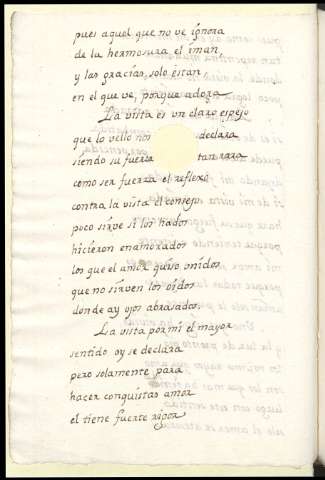 pues aquel que no ve ignora
de la hermosura el iman
y las gracias, solo estan
en el que ve, porque adora
La vista es un claro espejo
que lo vello nos declara
siendo su fuerza tan rara
como ser fuerza el reflexo
contra la vista el consejo
poco sirve si los hados
hicieron enamorados
los que el amor quiso unidos
que no sirven los oidos
donde ay ojos abrasados.
La vista por mi el mayor
sentido oy se declara
pero solamente para
hacer conquistas amor
el tiene fuerte rigor